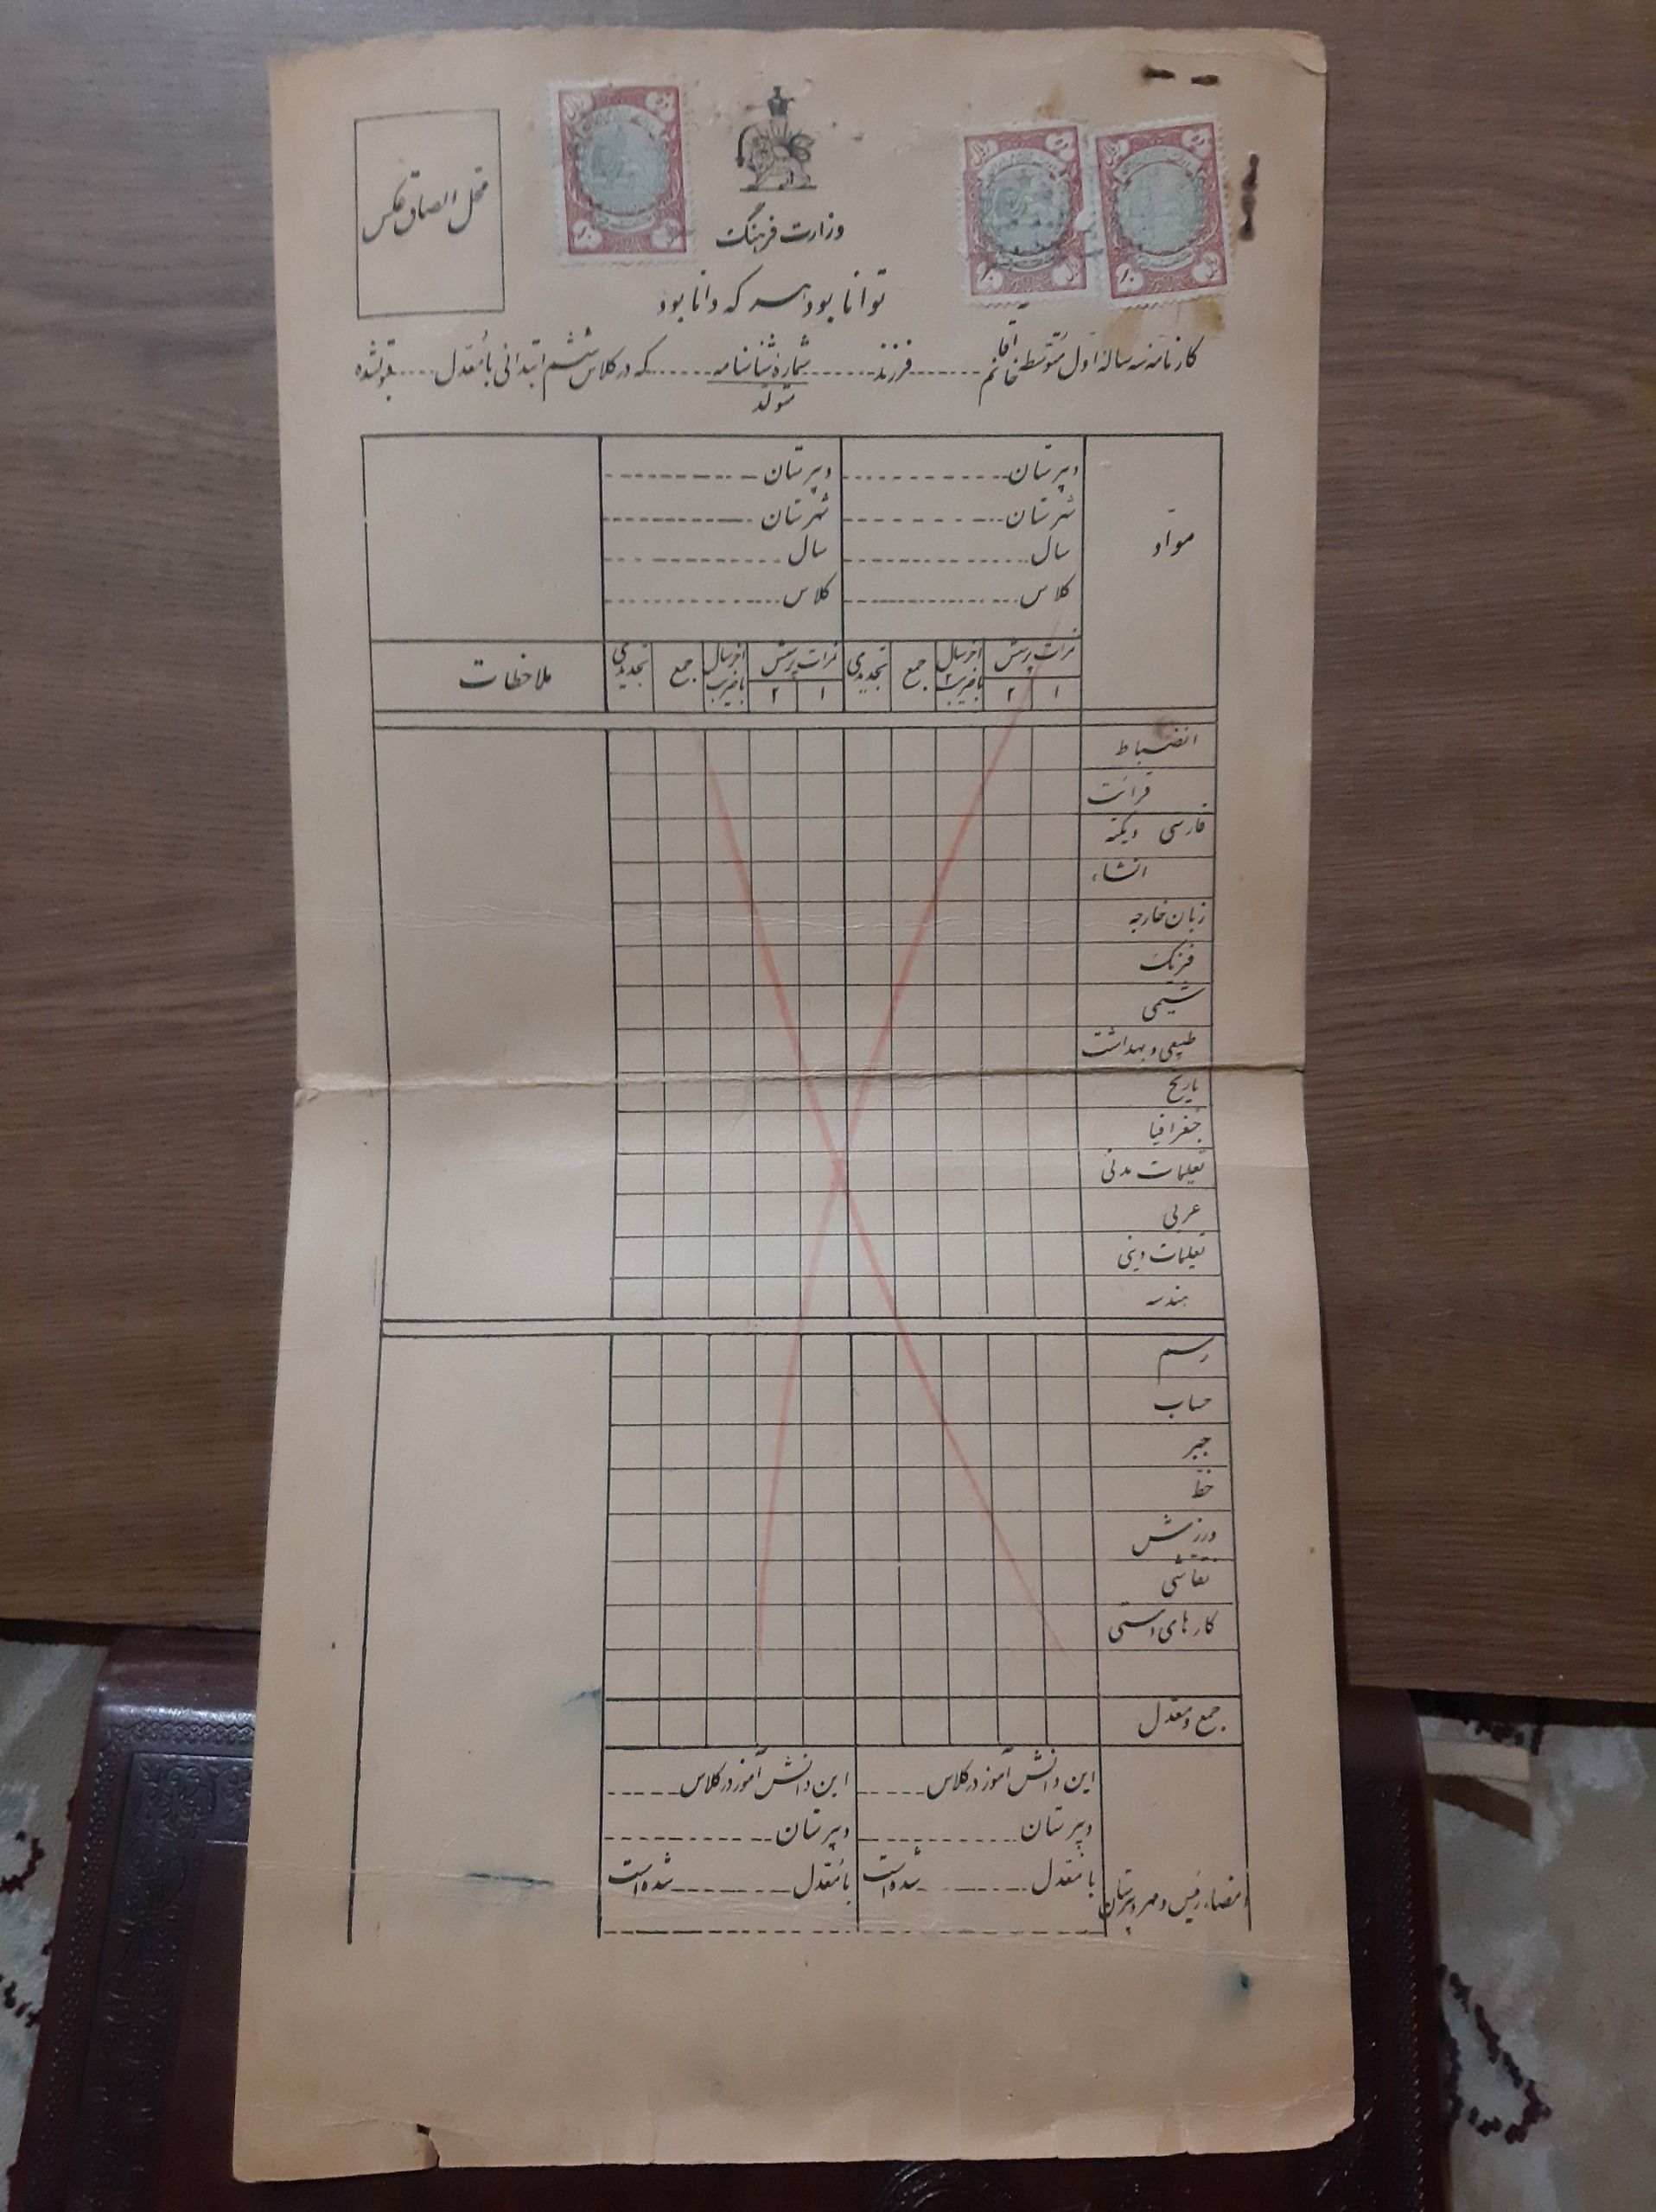 محل الصاق عکس
وزارت فرهنگ
توانا بود هر که دانا بود
کارنامه سه ساله اول متوسطه آقا خانم ...... فرزند ...... شماره شناسنامه ...... که در کلاس ششم ابتدائی با معدل ...... قبول شده
متولد
مواد
دبیرستان ...... دبیرستان ......
شهرستان ...... شهرستان ......
سال ...... سال ......
کلاس ...... کلاس ......
نمرات پرسش آخر سال با ضریب ۲ جمع تجدیدی نمرات پرسش آخر سال با ضریب جمع تجدیدی ملاحظات
۱ ۲ ۱ ۲
انضباط
قرائت
فارسی دیکته
انشاء
زبان خارجه
فیزیک
شیمی
طبیعی و بهداشت
تاریخ
جغرافیا
تعلیمات مدنی
عربی
تعلیمات دینی
هندسه
رسم
حساب
جبر
خط
ورزش
نقاشی
کارهای دستی
جمع و معدل
این دانش آموز در کلاس ...... این دانش آموز در کلاس ......
دبیرستان ...... دبیرستان ......
با معدل ...... شده است با معدل ...... شده است
امضاء رئیس و مهر دبیرستان